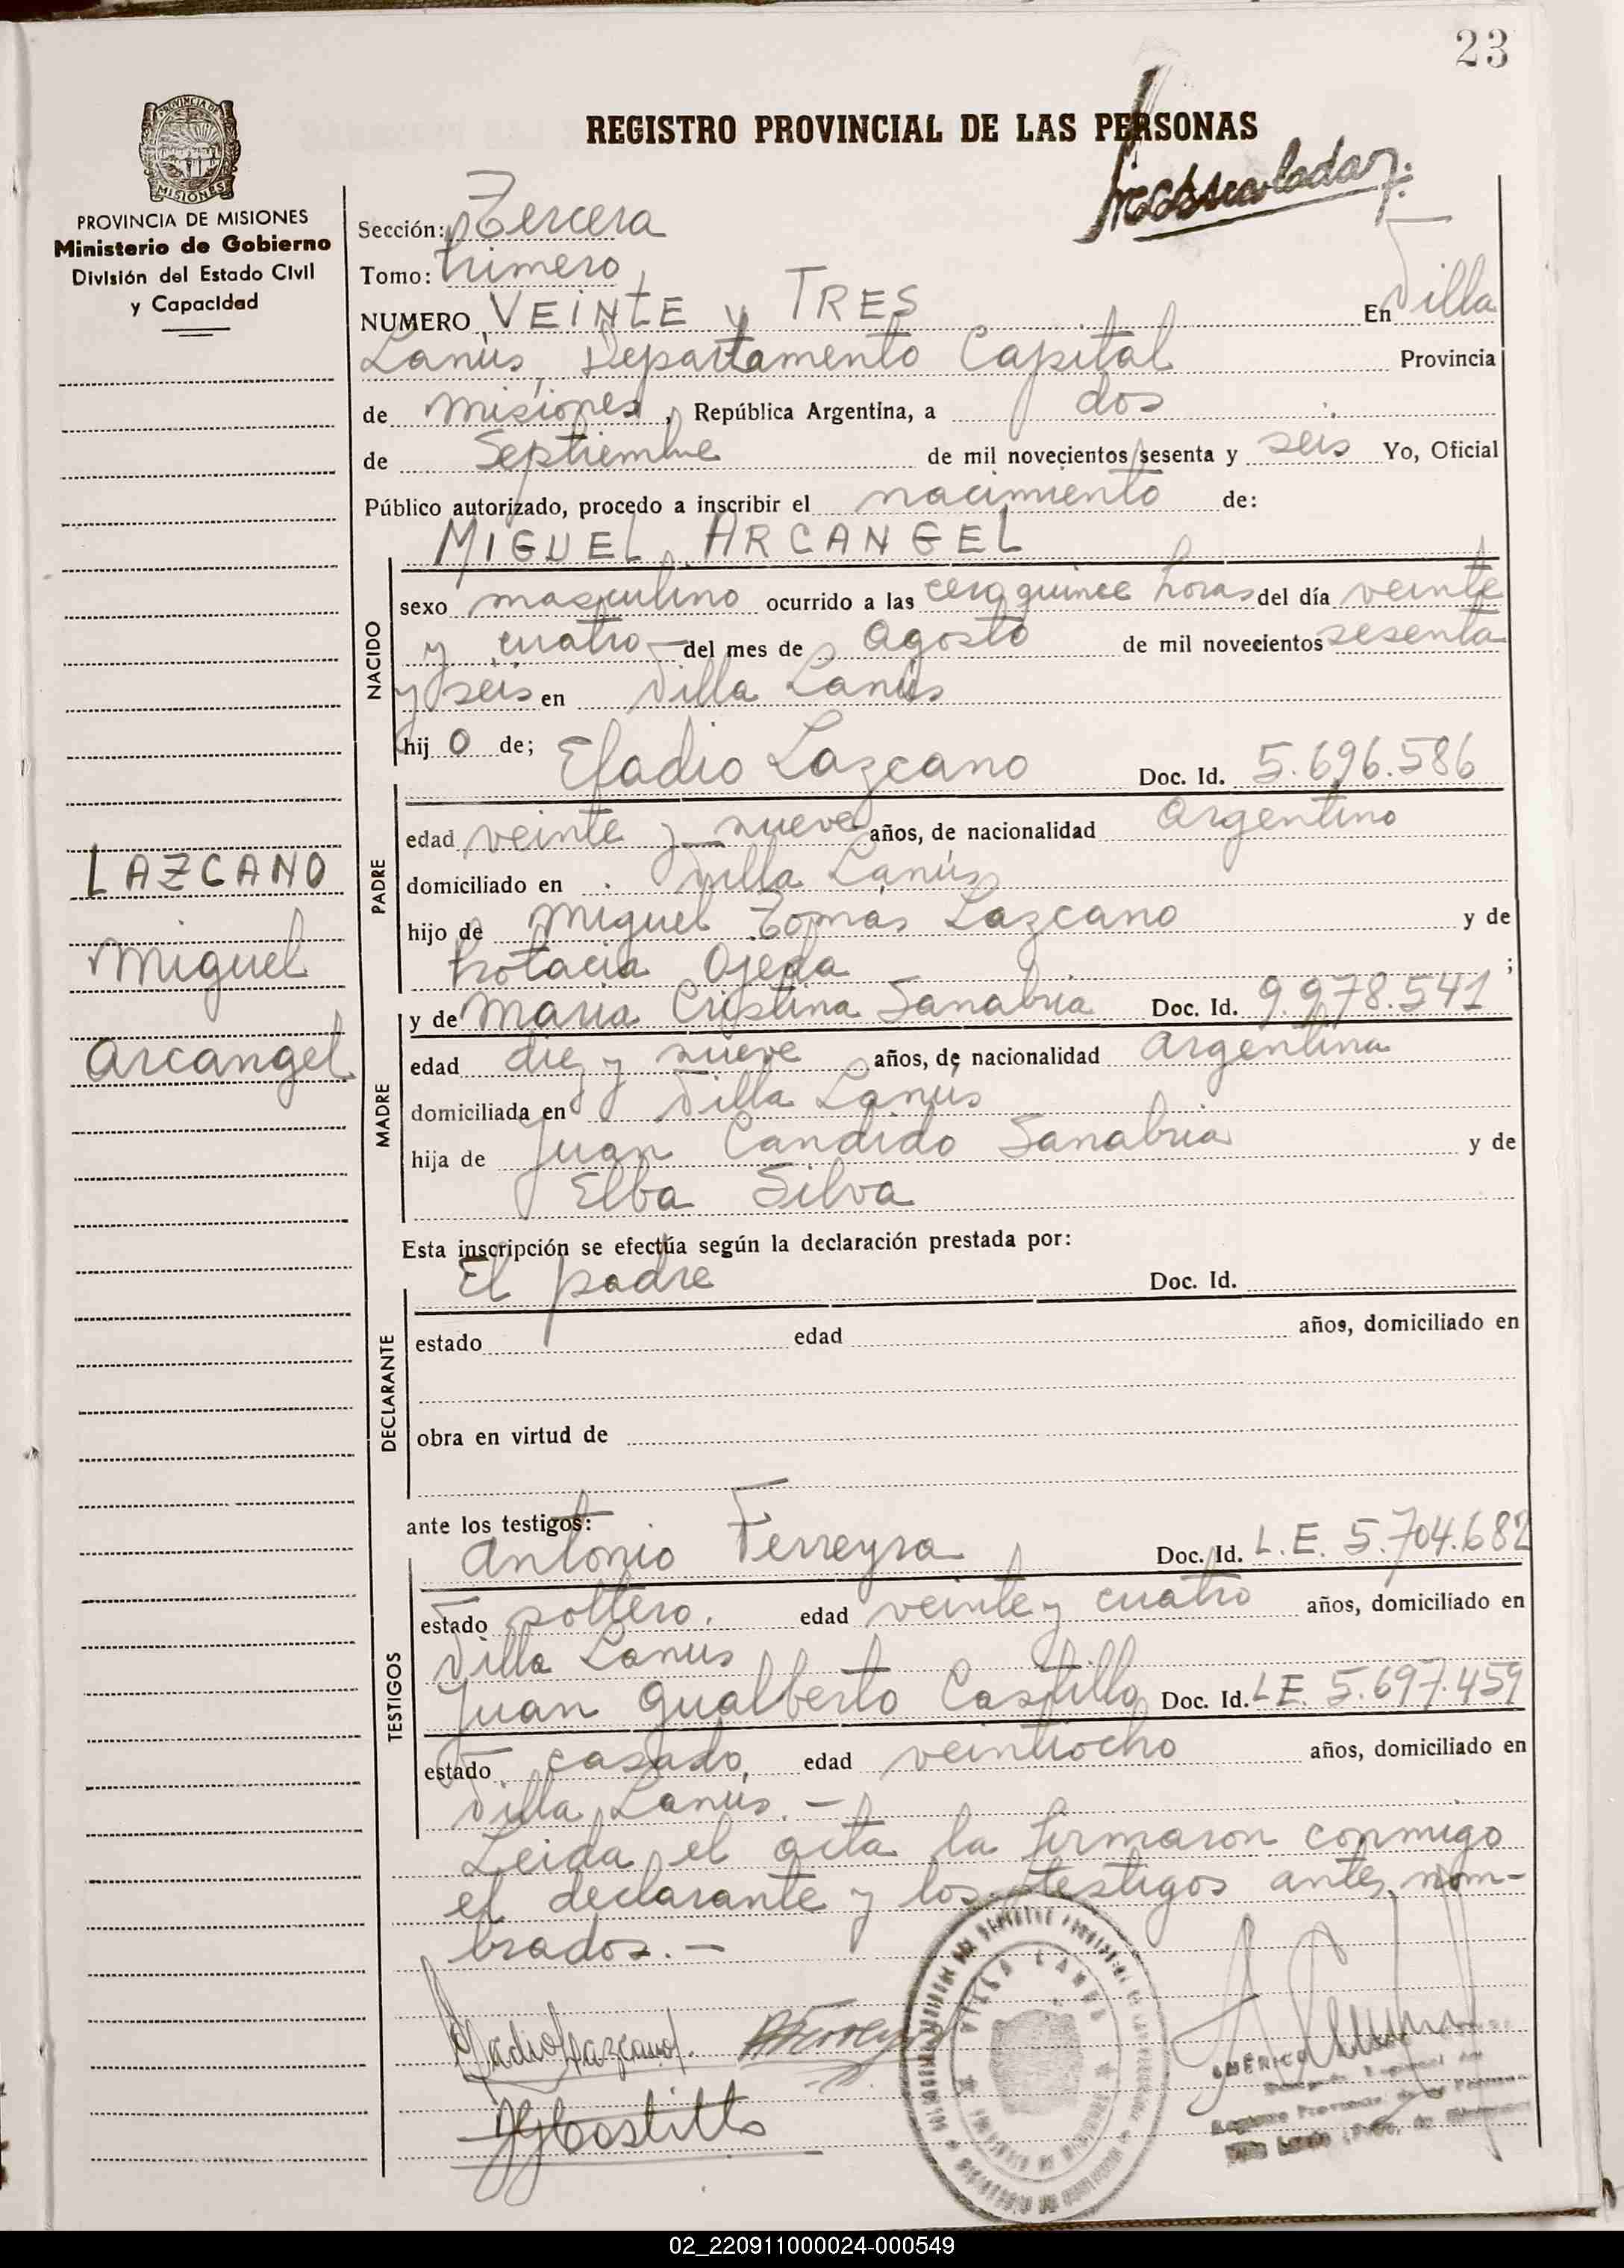 23
REGISTRO PROVINCIAL DE LAS PERSONAS
PROVINCIA DE MISIONES
Ministerio de Gobierno
División del Estado Civil
y Capacidad
Sección: Tercera
Tomo: Primero
NUMERO VEINTE y TRES En Villa
Lanús, Departamento Capital Provincia
de Misiones, República Argentina, a dos
de Septiembre de mil novecientos sesenta y seis Yo, Oficial
Público autorizado, procedo a inscribir el nacimiento de:
MIGUEL ARCANGEL
NACIDO
sexo masculino ocurrido a las cero quince horas del día veinte
y cuatro — del mes de Agosto de mil novecientos sesenta
y seis en Villa Lanús
hijo de; Eladio Lazcano Doc. Id. 5.696.586
PADRE
edad veinte y nueve años, de nacionalidad Argentino
domiciliado en Villa Lanús
hijo de Miguel Tomás Lazcano y de
Protacia Ojeda ;
y de Maria Cristina Sanabria Doc. Id. 9.978.541
MADRE
edad diez y nueve años, de nacionalidad Argentina
domiciliada en Villa Lanús
hija de Juan Candido Sanabria y de
Elba Silva
LAZCANO
Miguel
Arcangel
Esta inscripción se efectúa según la declaración prestada por:
El padre Doc. Id.
DECLARANTE
estado edad años, domiciliado en
obra en virtud de
ante los testigos:
Antonio Ferreyra Doc. Id. L.E. 5.704.682
TESTIGOS
estado soltero. edad veinte y cuatro años, domiciliado en
Villa Lanus
Juan Gualberto Castillo Doc. Id. L.E. 5.697.459
estado casado, edad veintiocho años, domiciliado en
Villa Lanús. —
Leida el acta la firmaron conmigo
el declarante y los testigos antes nom-
brados. —
Eladio Lazcano
AFerreyra
JGCastillo
VILLA LANUS
AMÉRICO
02_220911000024-000549